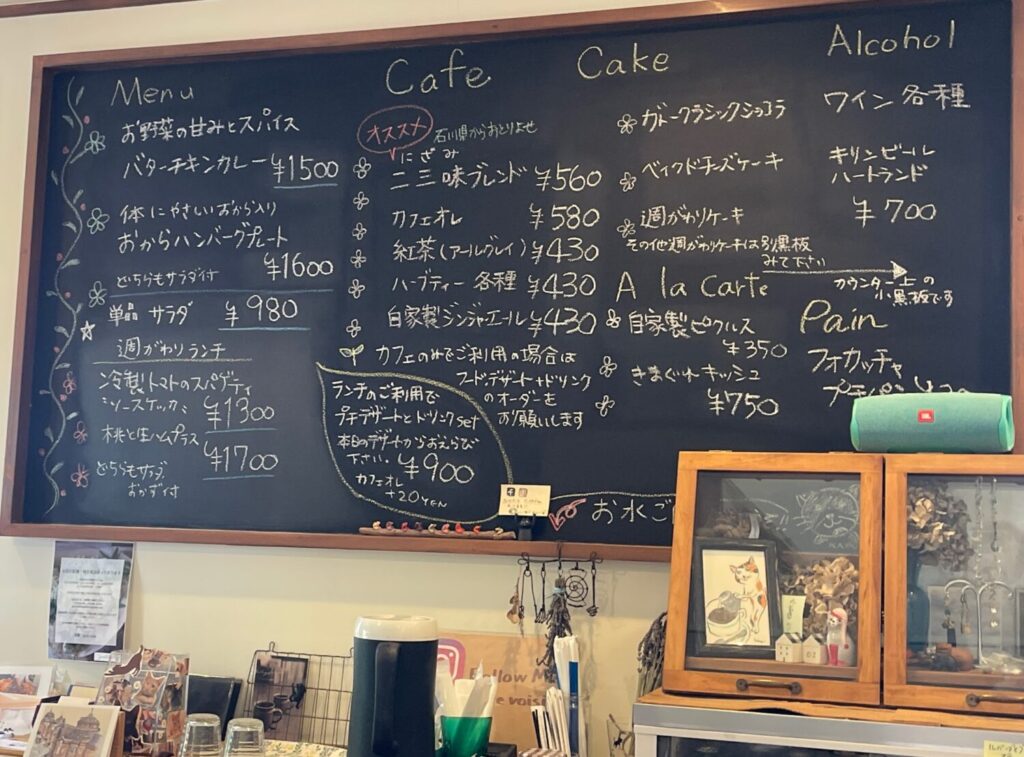 Menu
お野菜の甘みとスパイス
バターチキンカレー ¥1500
体にやさしいおから入り
おからハンバーグプレート
¥1600
どちらもサラダ付
単品 サラダ ¥980
週がわりランチ
冷製トマトのスパゲティ
¥1300
桃と生ハムプラス
¥1700
どちらもサラダ、
おかず付
Cafe
オススメ
石川県からおとりよせ
にざみ
二三味ブレンド ¥560
カフェオレ ¥580
紅茶(アールグレイ) ¥430
ハーブティー 各種 ¥430
自家製ジンジャエール ¥430
カフェのみでご利用の場合は
フード、デザート+ドリンク
のオーダーを
お願いします
ランチのご利用で
プチデザートとドリンクset
本日のデザートからおえらび
下さい。 ¥900
カフェオレ
+20yen
お水ご
Cake
ガトークラシックショコラ
ベイクドチーズケーキ
週がわりケーキ
その他週がわりケーキは別黒板
みて下さい
カウンター上の
小黒板です
A la carte
自家製ピクルス
¥350
きまぐれキッシュ
¥750
Alcohol
ワイン各種
キリンビール
ハートランド
¥700
Pain
フォカッチャ
JBL
Follow M